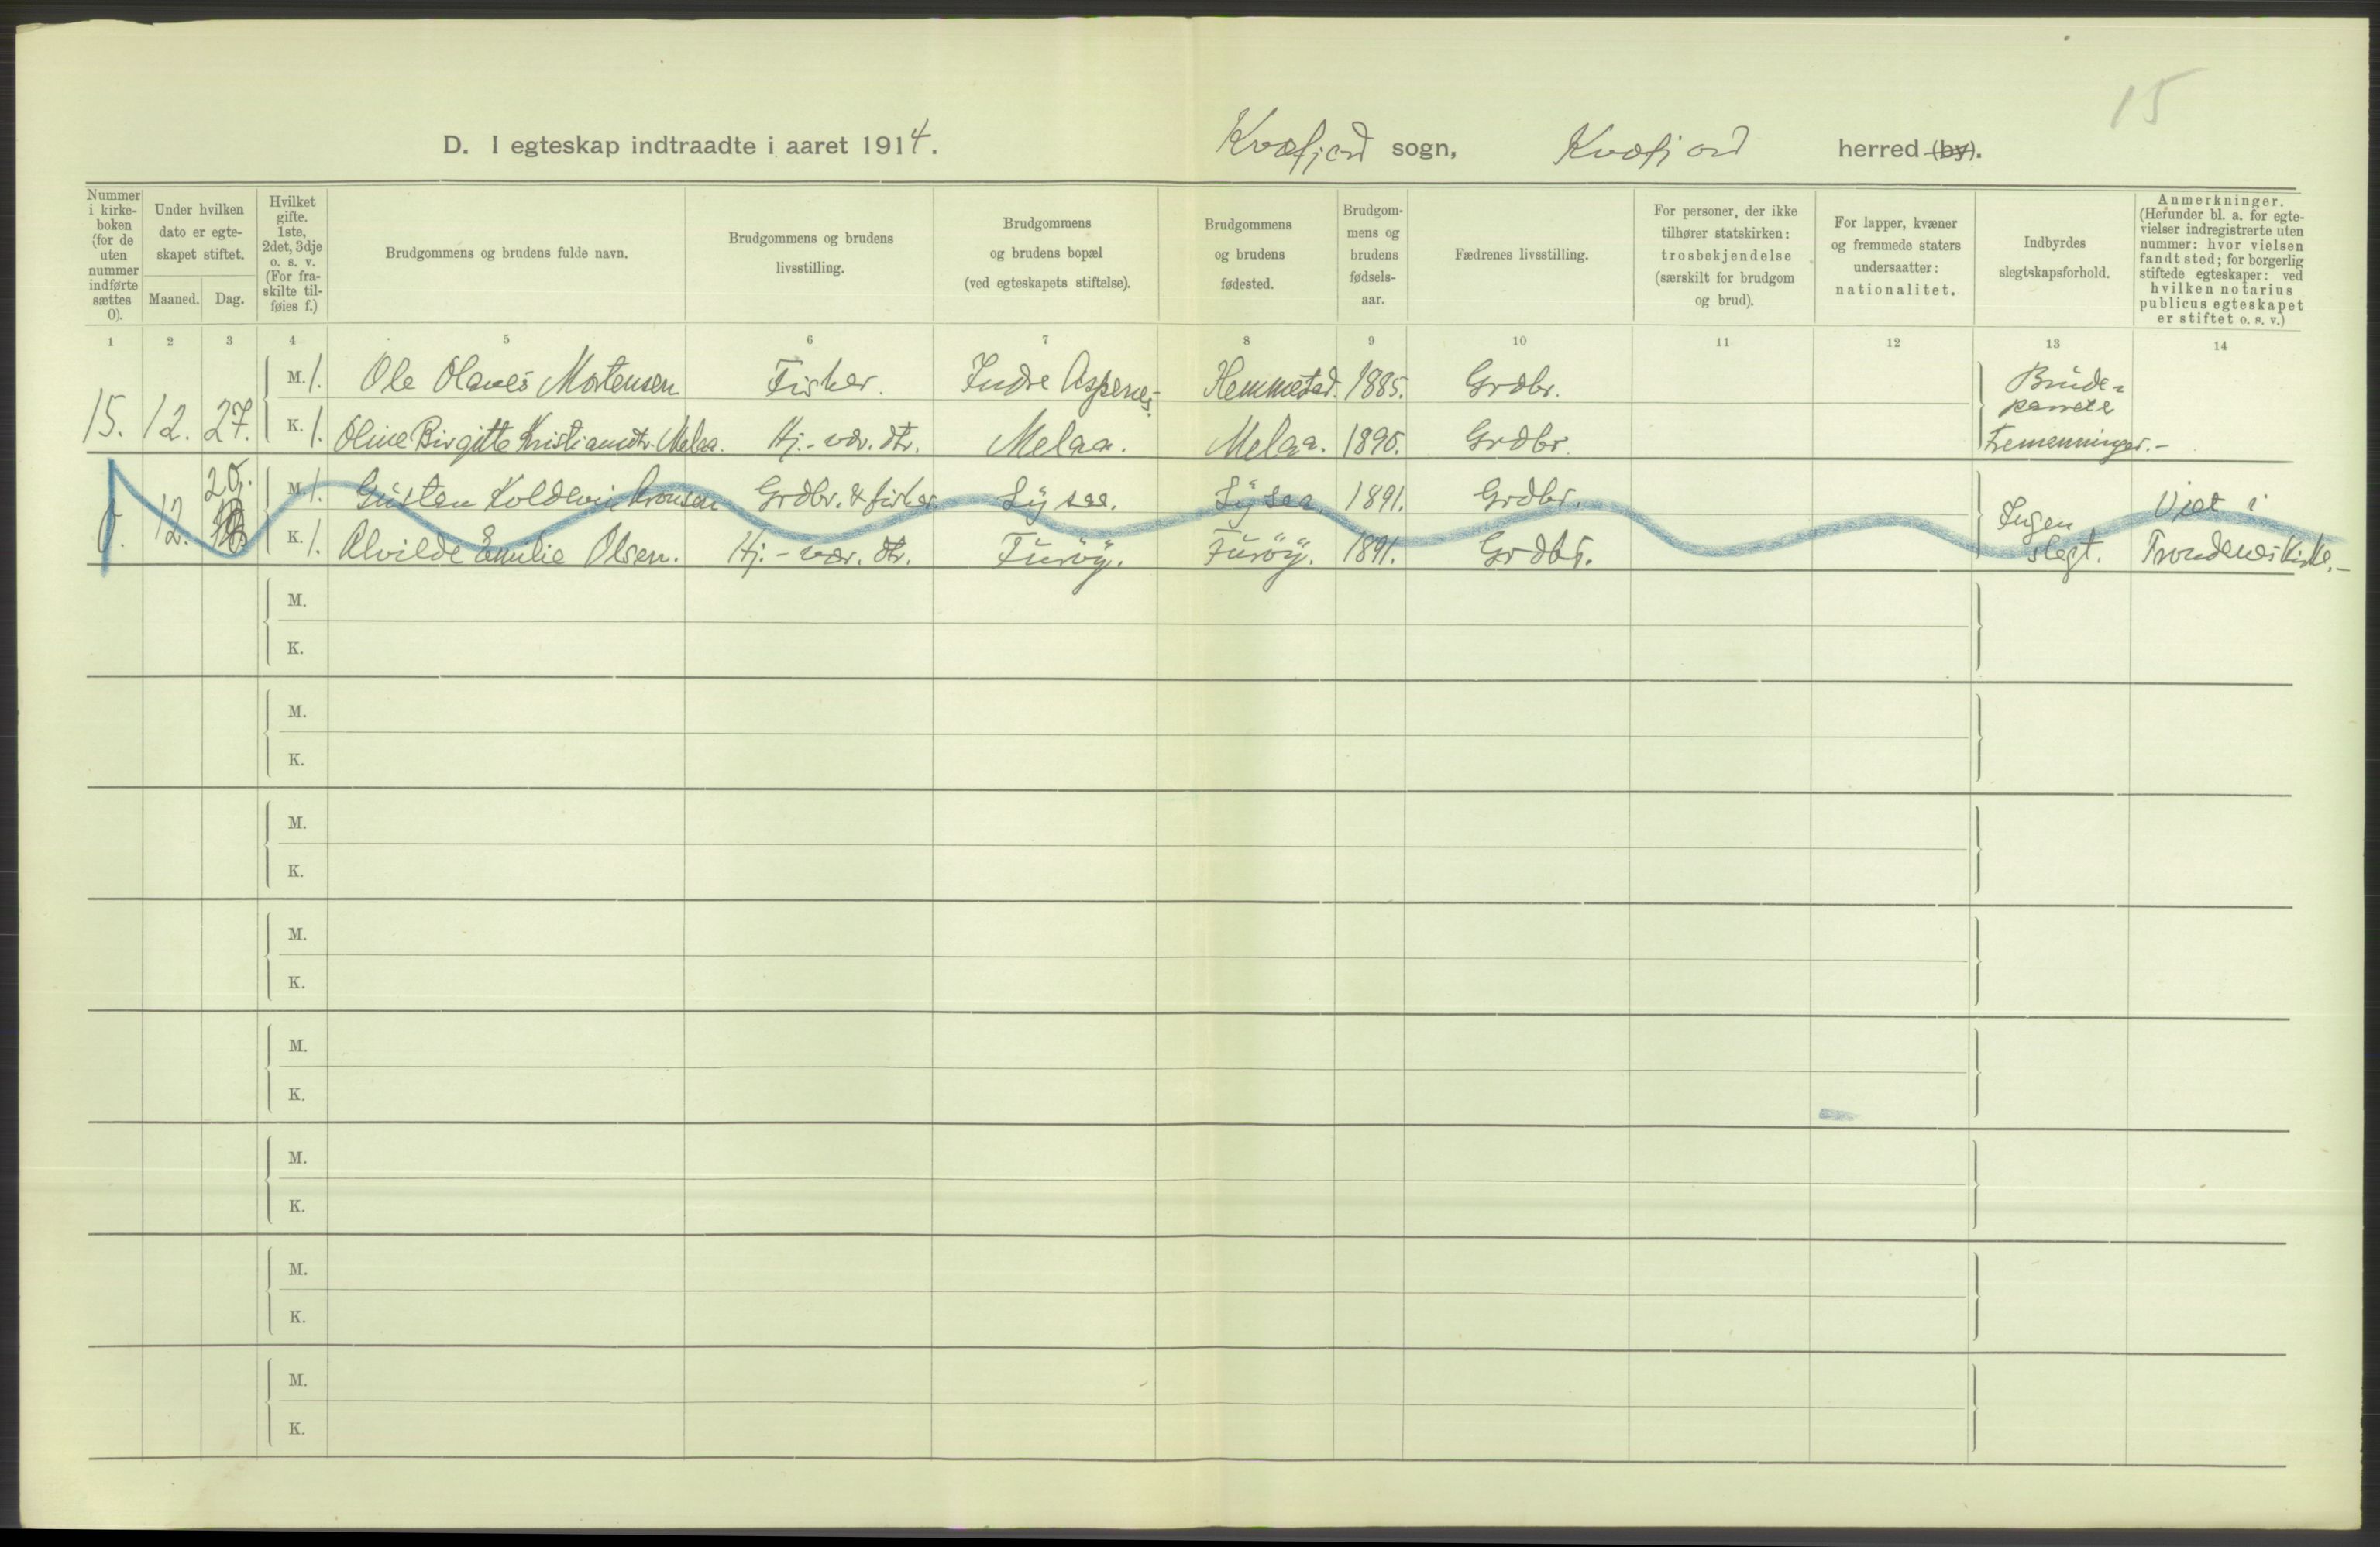 15
D. I egteskap indtraadte i aaret 1914. Kvæfjord sogn, Kvæfjord herred (by).
Nummer i kirke-boken (for de uten nummer indførte sættes 0).
Under hvilken dato er egte-skapet stiftet.
Maaned. Dag.
Hvilket gifte. 1ste, 2det, 3dje o. s. v. (For fra-skilte til-føies f.)
Brudgommens og brudens fulde navn.
Brudgommens og brudens livsstilling.
Brudgommens og brudens bopæl (ved egteskapets stiftelse).
Brudgommens og brudens fødested.
Brudgom-mens og brudens fødsels-aar.
Fædrenes livsstilling.
For personer, der ikke tilhører statskirken: trosbekjendelse (særskilt for brudgom og brud).
For lapper, kvæner og fremmede staters undersaatter: nationalitet.
Indbyrdes slegtskapsforhold.
Anmerkninger. (Herunder bl. a. for egte-vielser indregistrerte uten nummer: hvor vielsen fandt sted; for borgerlig stiftede egteskaper: ved hvilken notarius publicus egteskapet er stiftet o. s. v.)
1 2 3 4 5 6 7 8 9 10 11 12 13 14
15. 12. 27.
M. 1. Ole Olaves Mortensen Fisker. Indre Aspenes. Hemmestad. 1885. Grdbr.
K. 1. Oline Birgitte Kristiansdtr. Melaa. Hj.-vær. dtr. Melaa. Melaa. 1890. Grdbr.
Brude-parret Tremenninger.-
0. 12. 20.
M. 1. Gusten Koldevin Aronsen Grdbr. & fisker. Lysaa. Lysaa. 1891. Grdbr.
K. 1. Alvilde Emilie Olsen. Hj.-vær. dtr. Furöy. Furöy. 1891. Grdbr.
Ingen slegt.
Viet i Trondenes Kirke.-
M.
K.
M.
K.
M.
K.
M.
K.
M.
K.
M.
K.
M.
K.
M.
K.